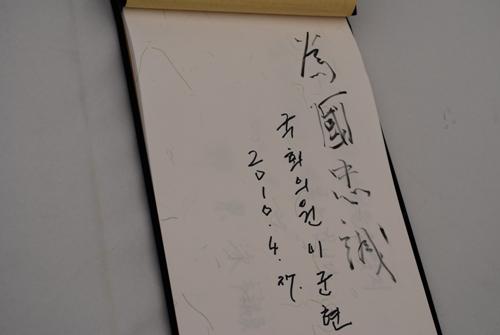 為國忠誠
국회의원 이군현
2010.4.27.